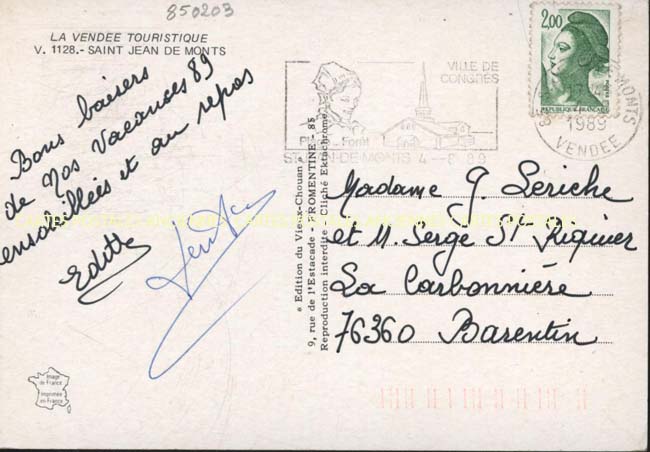 850203
LA VENDEE TOURISTIQUE
V. 1128.- SAINT JEAN DE MONTS
Bons baisers
de Nos Vacances 89
ensoleillées et au repos
Editte
« Edition du Vieux-Chouan »
9, rue de l'Estacade - FROMENTINE - 85
Reproduction interdite - Cliché Ektachrome
VILLE DE
CONGRES
Forêt
ST-JEAN-DE-MONTS 4-8 89
2,00
REPUBLIQUE FRANÇAISE
MONTS
1989
VENDEE
Madame G. Leriche
et M. Serge St Riquier
La Carbonnière
76360 Barentin
Image
de France
Imprimée
en France